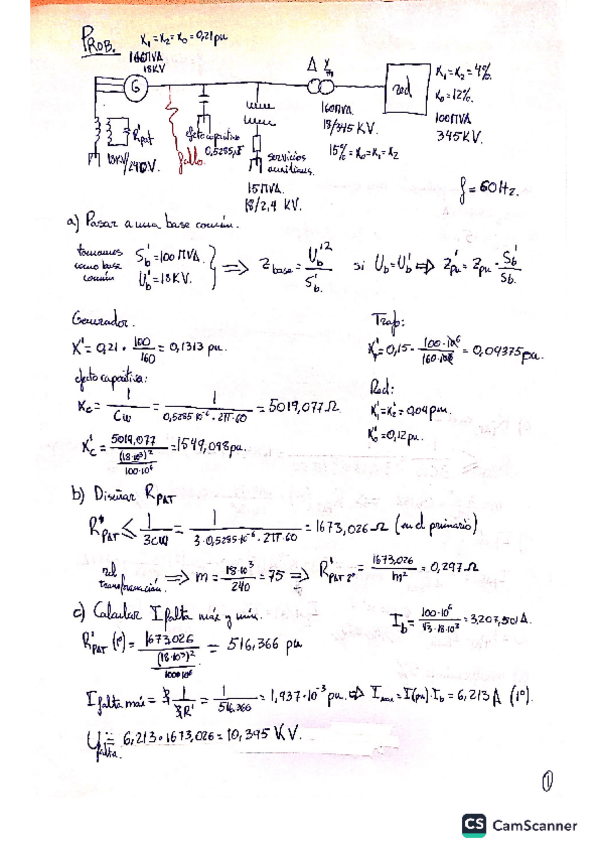 PROB. X₁=X₂=X₀=0,21pu
160MVA
18KV
G
Δ
red
X₁=X₂=4%
X₀=12%
100MVA
345KV.
160MVA.
18/345 KV.
15%=X₀=X₁=X₂
RPAT
18KV/240V.
fallo
efecto capacitivo
0,5285μF
servicios auxiliares.
15MVA.
18/2,4 KV.
f=60Hz.
a) Pasar a una base común.
tomamos como base común
S'b=100MVA.
U'b=18KV.
⟹ Zbase=U'b²/S'b. si Ub=U'b ⟺ Z'pu=Zpu·S'b/Sb.
Generador.
X'=0,21·100/160=0,1313 pu.
Trafo:
X'T=0,15·100·10⁶/160·10⁶=0,09375pu.
efecto capacitivo:
Xc=1/Cω=1/0,5285·10⁻⁶·2π·60=5019,077Ω
X'c=5019,077/((18·10³)²/100·10⁶)=1549,098pu.
Red:
X'₁=X'₂=0,04pu.
X'₀=0,12pu.
b) Diseñar RPAT
RPAT≤1/3cω=1/3·0,5285·10⁻⁶·2π·60=1673,026Ω (en el primario)
rel transformación. ⟹ m=18·10³/240=75 ⟹ R'PAT 2º=1673,026/m²=0,297Ω
c) Calcular I falta máx y mín.
Ib=100·10⁶/√3·18·10³=3,207,501A.
R'PAT(1º)=1673,026/((18·10³)²/100·10⁶)=516,366 pu
I falta máx=3·1/3R'=1/516,366=1,937·10⁻³pu.⟹ Imax=I(pu)·Ib=6,213A (1º).
U falta.=6,213·1673,026=10,395KV.
1
CS CamScanner